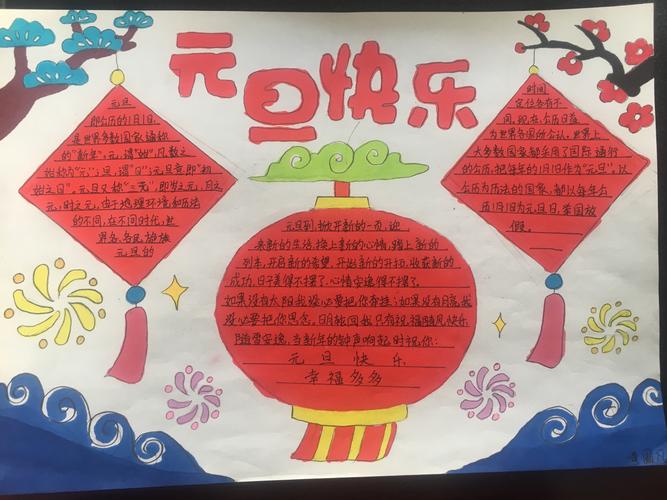 元旦快乐
元旦
即公历的1月1日,
是世界多数国家通称
的"新年"。元,谓"始",凡数之
始称为"元";旦,谓"日";元旦意即"初
始之日"。元旦又称"三元",即岁之元,月之
元,时之元。由于地理环境和历法
的不同,在不同时代,世
界各
元旦的
元旦到,掀开新的一页,迎
来新的生活,换上新的心情,踏上新的
列车,开启新的希望,开始新的开拓,收获新的
成功,日子美得不摆了,心情安逸得不摆了。
如果没有太阳我没必要把你牵挂;如果没有月亮我
没必要把你思念,日月轮回我只有祝福随风快乐
随雪安逸,当新年的钟声响起时祝你:
元旦快乐
幸福多多
时间
定位各有不
同,现在,公历日益
为世界各国所公认,世界上
大多数国家都采用了国际通行
的公历,把每年的1月1日作为"元旦"。以
公历为历法的国家,都以每年公
历1月1日为元旦日,举国放
假。